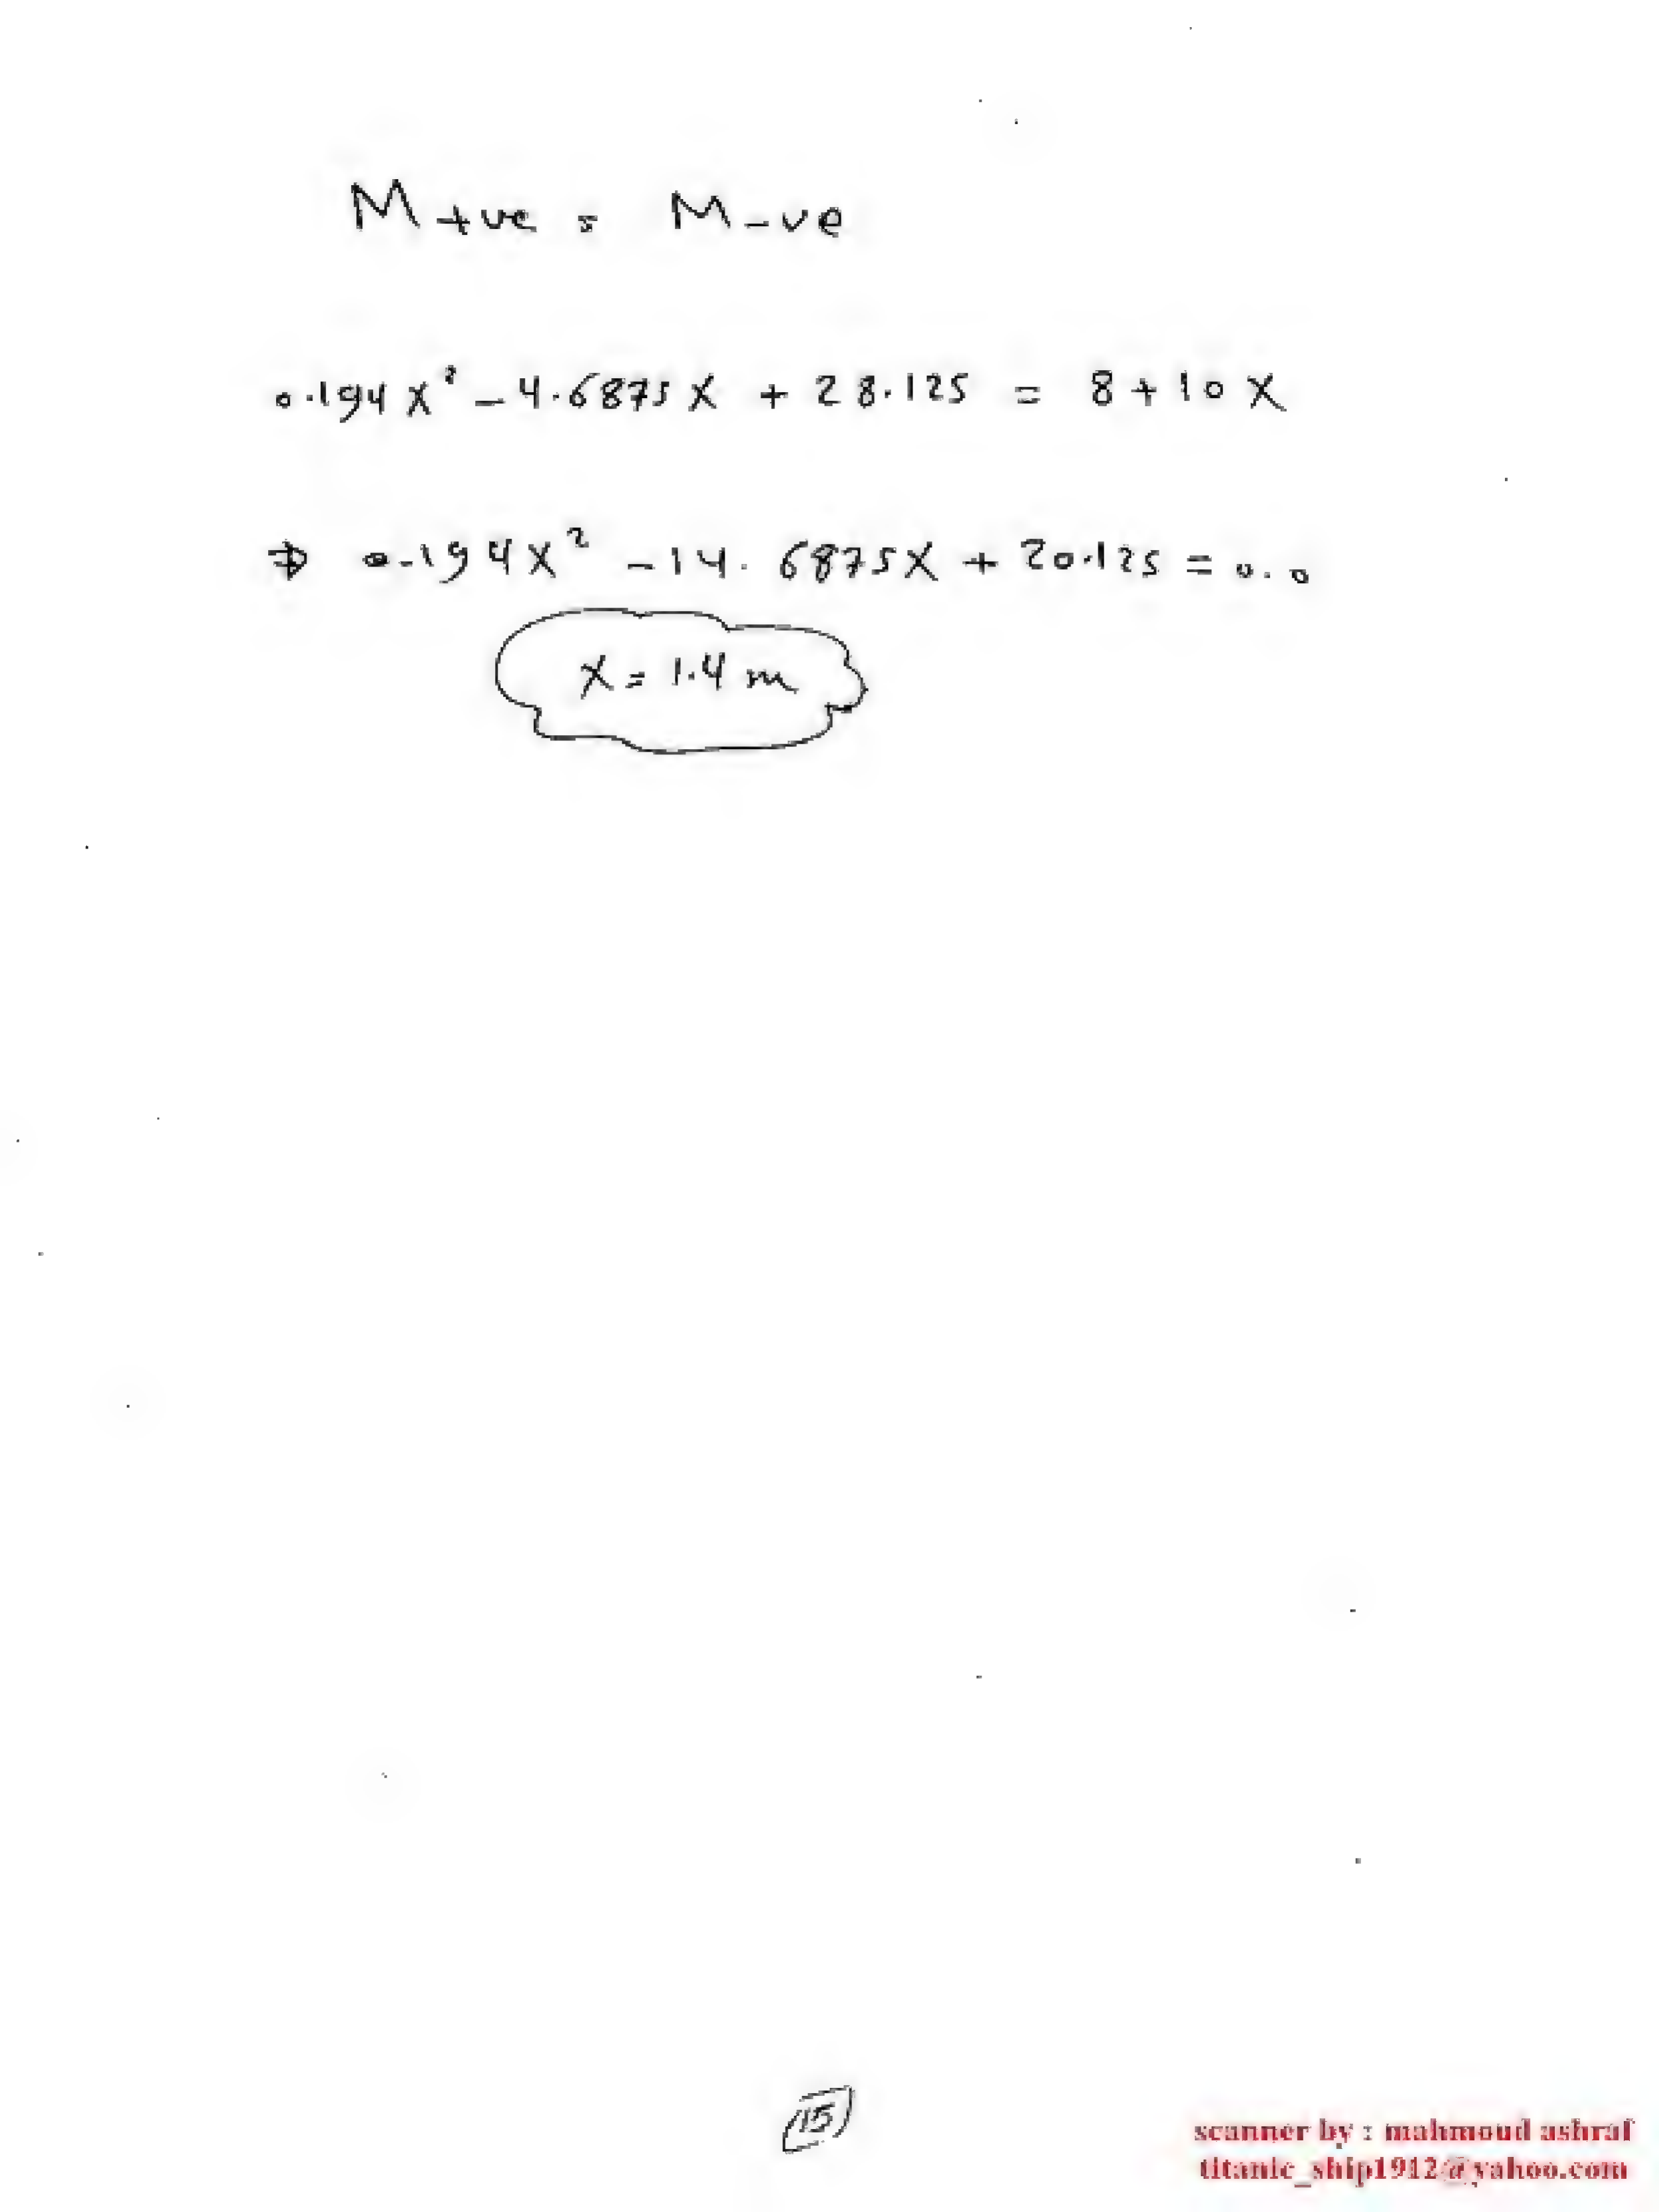 M+ve = M-ve
0.194 X² - 4.6875 X + 28.125 = 8 + 10 X
⇒ 0.194X² - 14.6875X + 20.125 = 0.0
X = 1.4 m
15
scanner by : mahmoud ashraf
titanic_ship1912@yahoo.com